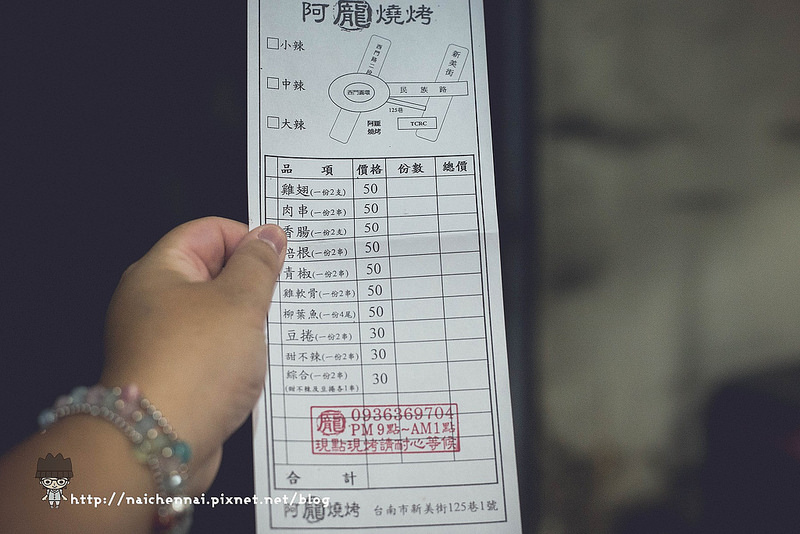 阿龐燒烤
□小辣
□中辣
□大辣
西門路二段
新美街
西門圓環
民族路
125巷
阿龐
燒烤
TCRC
品項 價格 份數 總價
雞翅(一份2支) 50
肉串(一份2串) 50
香腸(一份2支) 50
培根(一份2串) 50
青椒(一份2串) 50
雞軟骨(一份2串) 50
柳葉魚(一份4尾) 50
豆捲(一份2串) 30
甜不辣(一份2串) 30
綜合(一份2串) 30
(甜不辣及豆捲各1串)
龐 0936369704
PM9點~AM1點
現點現烤請耐心等候
合計
阿龐燒烤 台南市新美街125巷1號
http://naichennai.pixnet.net/blog